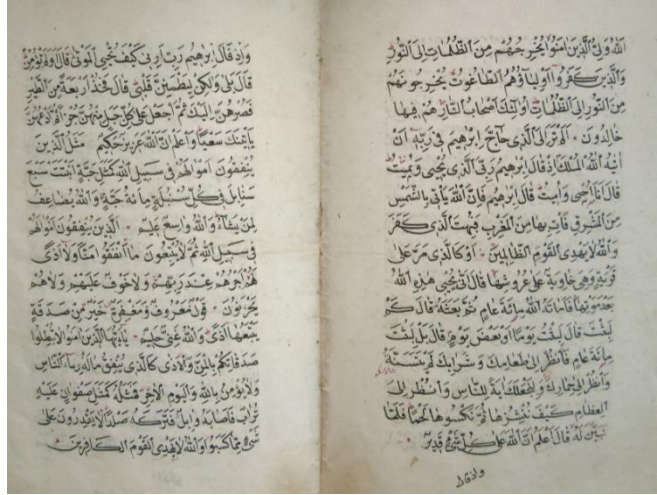 الله ولي الذين امنوا يخرجهم من الظلمات الى النور
والذين كفروا اولياؤهم الطاغوت يخرجونهم
من النور الى الظلمات اولئك اصحاب النار هم فيها
خالدون الم تر الى الذي حاج ابرهيم في ربه ان
اتيه الله الملك اذ قال ابرهيم ربي الذي يحيى ويميت
قال انا احيى واميت قال ابرهيم فان الله ياتي بالشمس
من المشرق فات بها من المغرب فبهت الذي كفر
والله لا يهدى القوم الظالمين او كالذي مر على
قرية وهي خاوية على عروشها قال انى يحيى هذه الله
بعد موتها فاماته الله مائة عام ثم بعثه قال كم
لبثت قال لبثت يوما او بعض يوم قال بل لبثت
مائة عام فانظر الى طعامك وشرابك لم يتسنه
وانظر الى حمارك ولنجعلك اية للناس وانظر الى
العظام كيف ننشزها ثم نكسوها لحما فلما
تبين له قال اعلم ان الله على كل شئ قدير
واذ قال
واذ قال ابرهيم رب ارنى كيف تحيى الموتى قال اولم تؤمن
قال بلى ولكن ليطمئن قلبى قال فخذ اربعة من الطير
فصرهن اليك ثم اجعل على كل جبل منهن جزءا ثم ادعهن
ياتينك سعيا واعلم ان الله عزيز حكيم مثل الذين
ينفقون اموالهم في سبيل الله كمثل حبة انبتت سبع
سنابل في كل سنبلة مائة حبة والله يضاعف
لمن يشاء والله واسع عليم الذين ينفقون اموالهم
في سبيل الله ثم لا يتبعون ما انفقوا منا ولا اذى
لهم اجرهم عند ربهم ولا خوف عليهم ولا هم
يحزنون قول معروف ومغفرة خير من صدقة
يتبعها اذى والله غنى حليم يا ايها الذين امنوا لا تبطلوا
صدقاتكم بالمن والاذى كالذي ينفق ماله رياء الناس
ولا يؤمن بالله واليوم الاخر فمثله كمثل صفوان عليه
تراب فاصابه وابل فتركه صلدا لا يقدرون على
شئ مما كسبوا والله لا يهدى القوم الكافرين